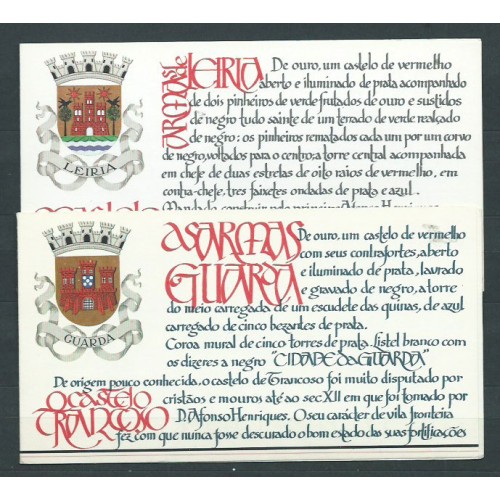 AS ARMAS de LEIRIA
De ouro, um castelo de vermelho
aberto e iluminado de prata acompanhado
de dois pinheiros de verde frutados de ouro e sustidos
de negro tudo sainte de um terrado de verde realçado
de negro: os pinheiros rematados cada um por um corvo
de negro, voltados para o centro; a torre central acompanhada
em chefe de duas estrelas de oito raios de vermelho, em
contra-chefe, tres faixetes ondadas de prata e azul.
LEIRIA
AS ARMAS
GUARDA
De ouro, um castelo de vermelho
com seus contrafortes, aberto
e iluminado de prata, laurado
e gravado de negro, a torre
do meio carregada de um escudete das quinas, de azul
carregado de cinco bezantes de prata.
Coroa mural de cinco torres de prata. Listel branco com
os dizeres a negro "CIDADE da GUARDA"
GUARDA
O CASTELO
TRANCOSO
De origem pouco conhecida, o castelo de Trancoso foi muito disputado por
cristãos e mouros até ao sec XII em que foi tomado por
D. Afonso Henriques. O seu carácter de vila fronteira
fez com que nunca fosse descurado o bom estado das suas fortificações